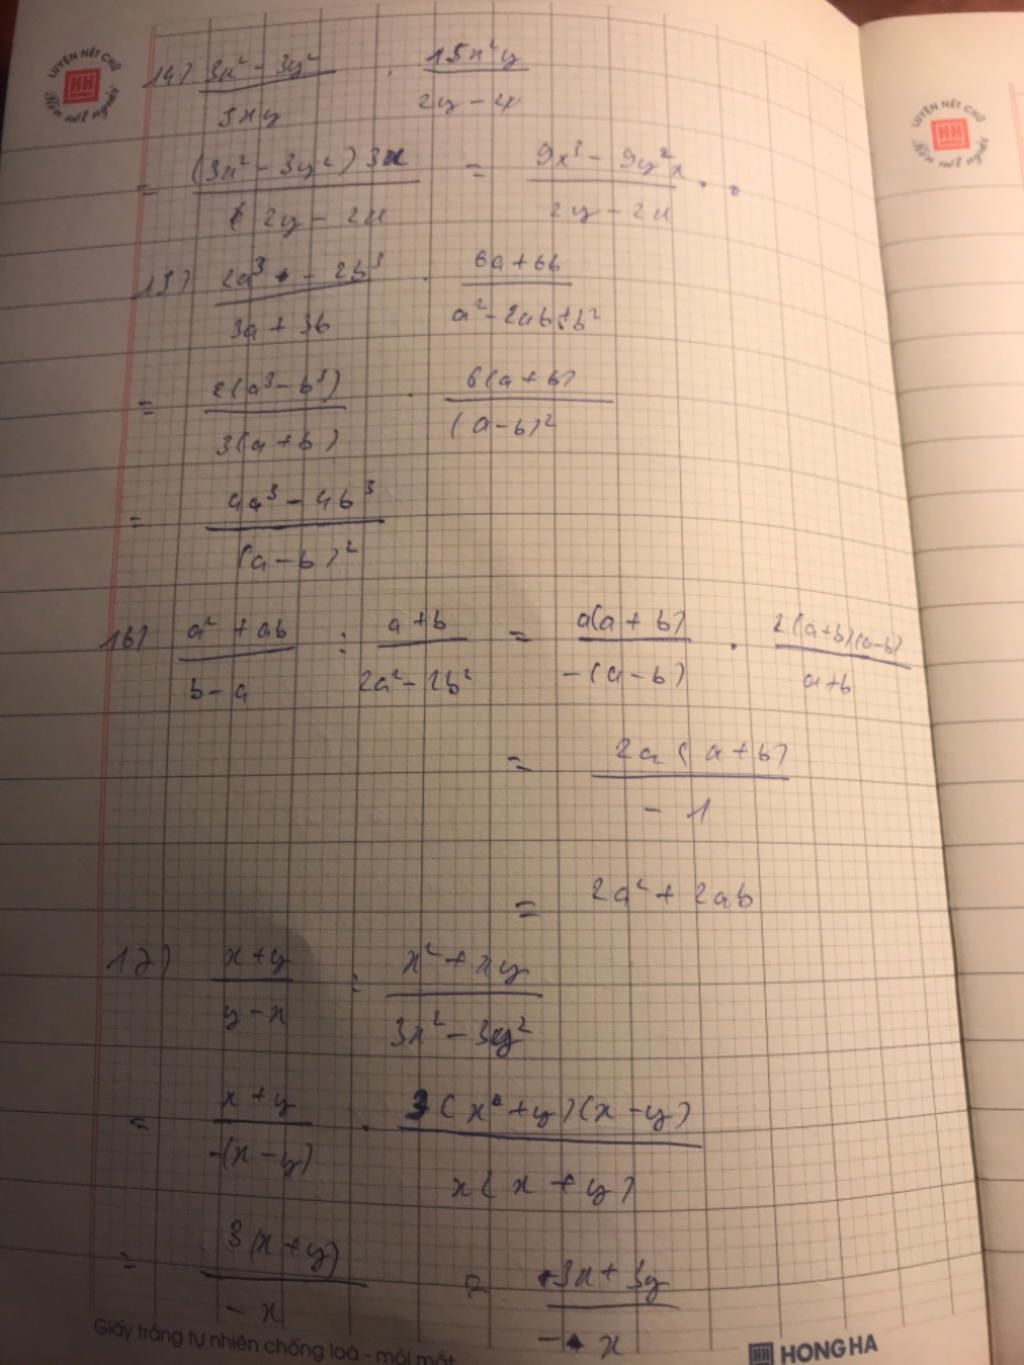 LUYỆN NÉT CHỮ
Rèn nét người
LUYỆN NÉT CHỮ
Rèn nét người
14) (3x² - 3y²)/(5xy) . (15x²y)/(2y - 2x)
= ((3x² - 3y²) 3x)/(2y - 2x) = (9x³ - 9y²x)/(2y - 2x)
15) (2a³ - 2b³)/(3a + 3b) . (6a + 6b)/(a² - 2ab + b²)
= (2(a³ - b³))/(3(a + b)) . (6(a + b))/((a - b)²)
= (4a³ - 4b³)/((a - b)²)
16) (a² + ab)/(b - a) : (a + b)/(2a² - 2b²) = (a(a + b))/(-(a - b)) . (2(a + b)(a - b))/(a + b)
= (2a(a + b))/(-1)
= 2a² + 2ab
17) (x + y)/(y - x) : (x² + xy)/(3x² - 3y²)
= (x + y)/(-(x - y)) . (3(x + y)(x - y))/(x(x + y))
= (3(x + y))/(-x) = (3x + 3y)/(-x)
Giấy trắng tự nhiên chống loá - mỏi mắt
HONG HA